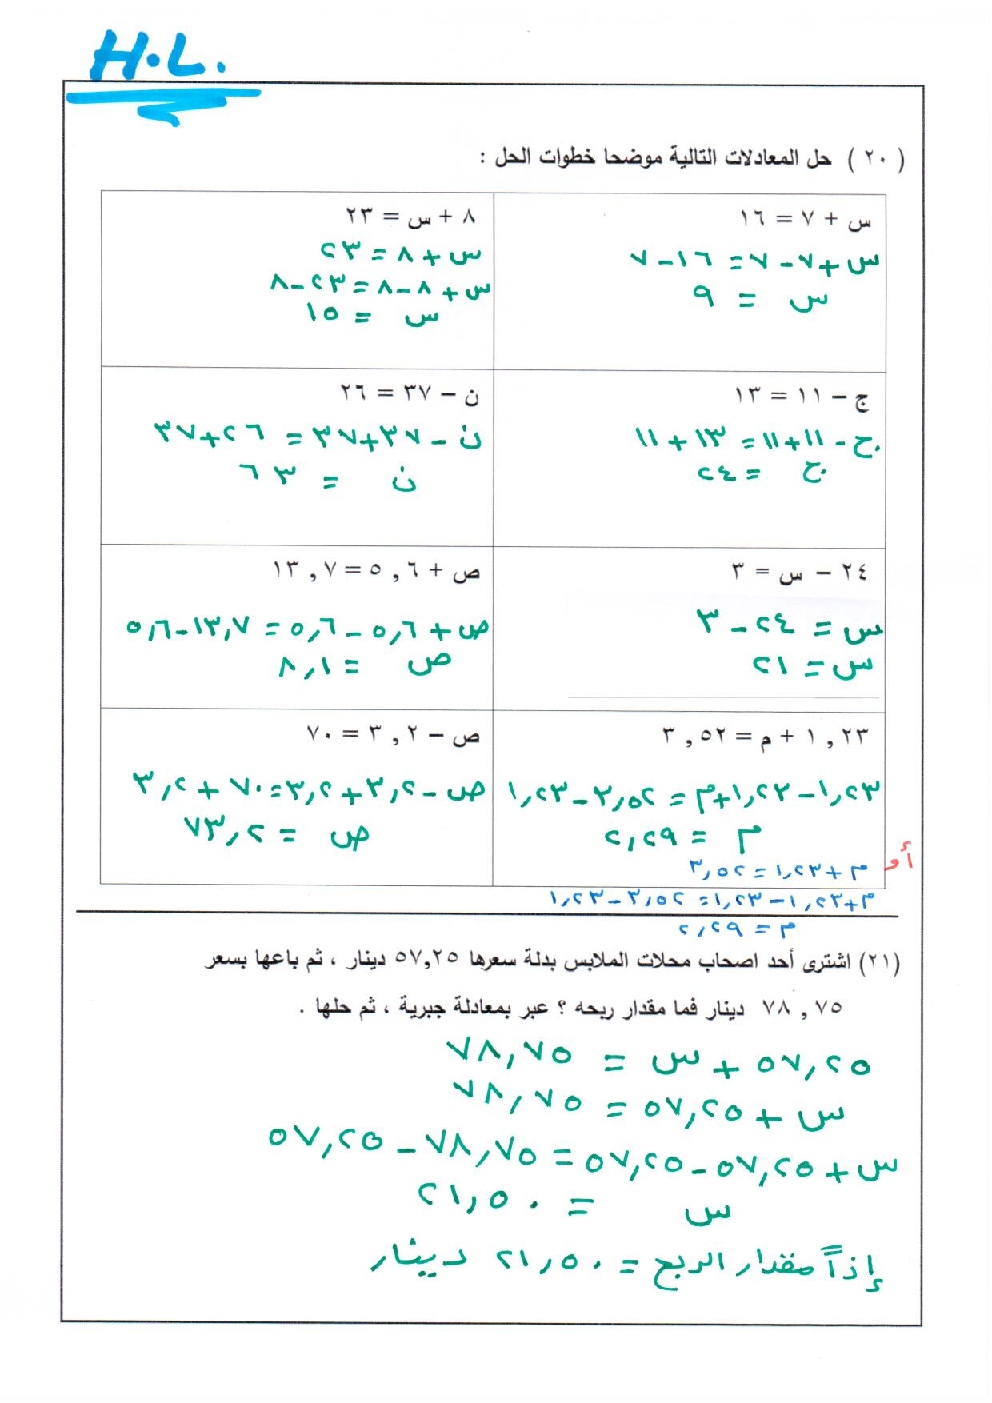 H.L.
(٢٠) حل المعادلات التالية موضحا خطوات الحل :
س + ٧ = ١٦
س + ٧ - ٧ = ١٦ - ٧
س = ٩
٨ + س = ٢٣
س + ٨ = ٢٣
س + ٨ - ٨ = ٢٣ - ٨
س = ١٥
ج - ١١ = ١٣
ج - ١١ + ١١ = ١٣ + ١١
ج = ٢٤
ن - ٣٧ = ٢٦
ن - ٣٧ + ٣٧ = ٢٦ + ٣٧
ن = ٦٣
٢٤ - س = ٣
س = ٢٤ - ٣
س = ٢١
ص + ٥,٦ = ١٣,٧
ص + ٥,٦ - ٥,٦ = ١٣,٧ - ٥,٦
ص = ٨,١
١,٢٣ + م = ٣,٥٢
١,٢٣ - ١,٢٣ + م = ٣,٥٢ - ١,٢٣
م = ٢,٢٩
أو
م + ١,٢٣ = ٣,٥٢
م + ١,٢٣ - ١,٢٣ = ٣,٥٢ - ١,٢٣
م = ٢,٢٩
ص - ٣,٢ = ٧٠
ص - ٣,٢ + ٣,٢ = ٧٠ + ٣,٢
ص = ٧٣,٢
(٢١) اشترى أحد اصحاب محلات الملابس بدلة سعرها ٥٧,٢٥ دينار ، ثم باعها بسعر
٧٨,٧٥ دينار فما مقدار ربحه ؟ عبر بمعادلة جبرية ، ثم حلها .
٥٧,٢٥ + س = ٧٨,٧٥
س + ٥٧,٢٥ = ٧٨,٧٥
س + ٥٧,٢٥ - ٥٧,٢٥ = ٧٨,٧٥ - ٥٧,٢٥
س = ٢١,٥٠
إذاً مقدار الربح = ٢١,٥٠ دينار